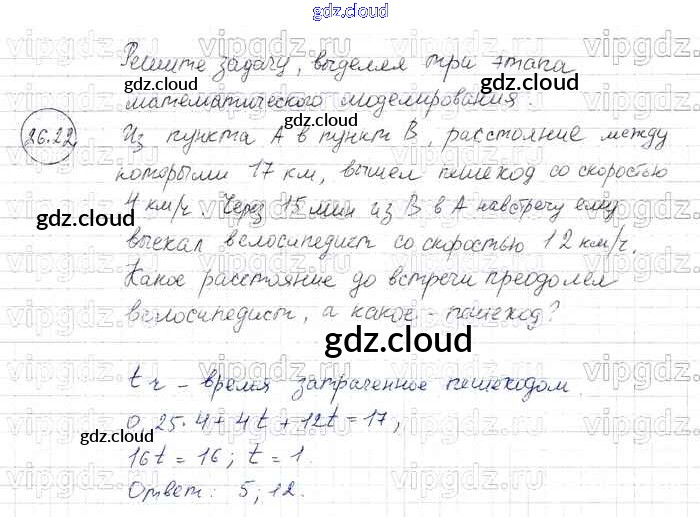 gdz.cloud
Решите задачу, выделяя три этапа
gdz.cloud
gdz.cloud
математического моделирования.
26.22.
Из пункта A в пункт B, расстояние между
gdz.cloud
которыми 17 км, вышел пешеход со скоростью
4 км/ч. Через 15 мин из B в A навстречу ему
gdz.cloud
gdz.cloud
выехал велосипедист со скоростью 12 км/ч.
Какое расстояние до встречи преодолел
gdz.cloud
велосипедист, а какое - пешеход?
gdz.cloud
t ч - время затраченное пешеходом.
0,25·4+4t+12t=17,
gdz.cloud
16t=16; t=1.
gdz.cloud
Ответ: 5; 12.
vipgdz.ru